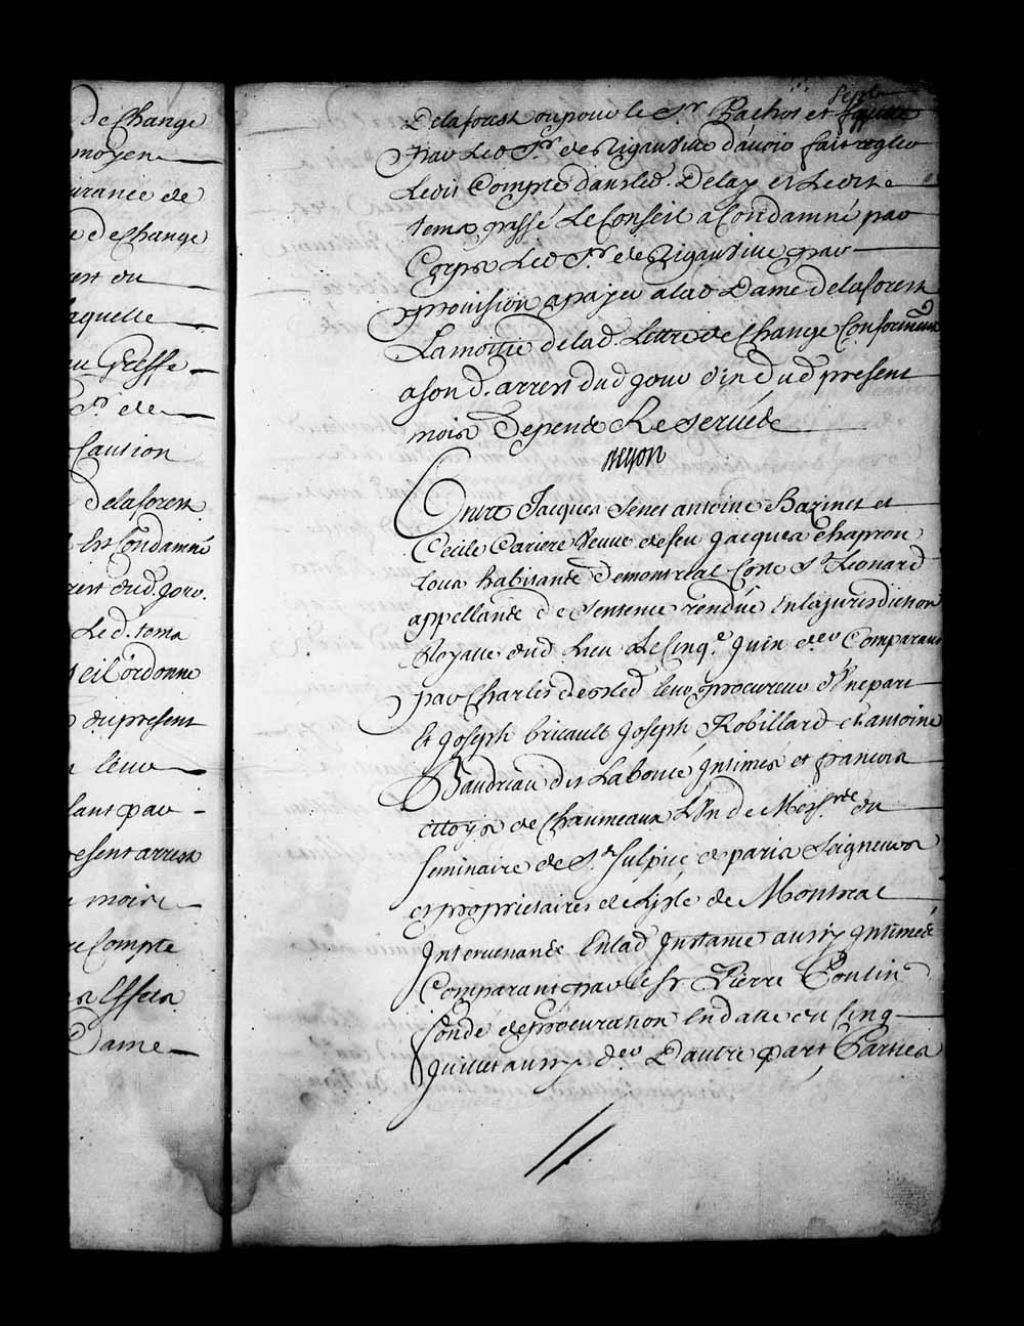 de Change
moyen
urance de
e de Change
rest ou
laquelle
au Greffe
Sr. de
Caution
delaforest
Est Condamné
rest dud. jour
Led. tems
seil ordonne
du present
leur
lant par
resent arrest
mois
re Compte
es Effets
Dame
delaforest ou pour le Sr. Pachot et
par Led Sr. de Rigauville d'avoir fait regler
Ledit Compte dans led. Delay et Ledit
tems passé Le Conseil a Condamné par
Corps Led Sr. de Rigauville par
provision a payer a lad Dame delaforest
La moitié de lad. Lettre de Change Conformemt
a son d. arrest dud jour d'un dud present
mois Depens Reservés
Entre Jacques Senet antoine Bazinet et
Cecile Cariere Veuve de feu Jacques Chapron
tous habitans de montreal Coste St. Leonard
appellans de Sentence rendüe En la jurisdiction
Royalle dud. Lieu Le Cinqe. Juin der Comparant
par Charles leur procureur d'Une part
Et Joseph bricault Joseph Robillard et antoine
Baudriau dit Labonté Intimés et francois
Citoys de Chaumeaux L'Un de Messrs. du
Seminaire de St. Sulpice de paris Seigneurs
et proprietaires de L'isle de Montreal
Intervenans En lad Instance aussy Intimés
Comparant par le Sr. Pierre Poulin
fondé de procuration En datte du Cinq
Juillet aussy der. D'autre part Parties